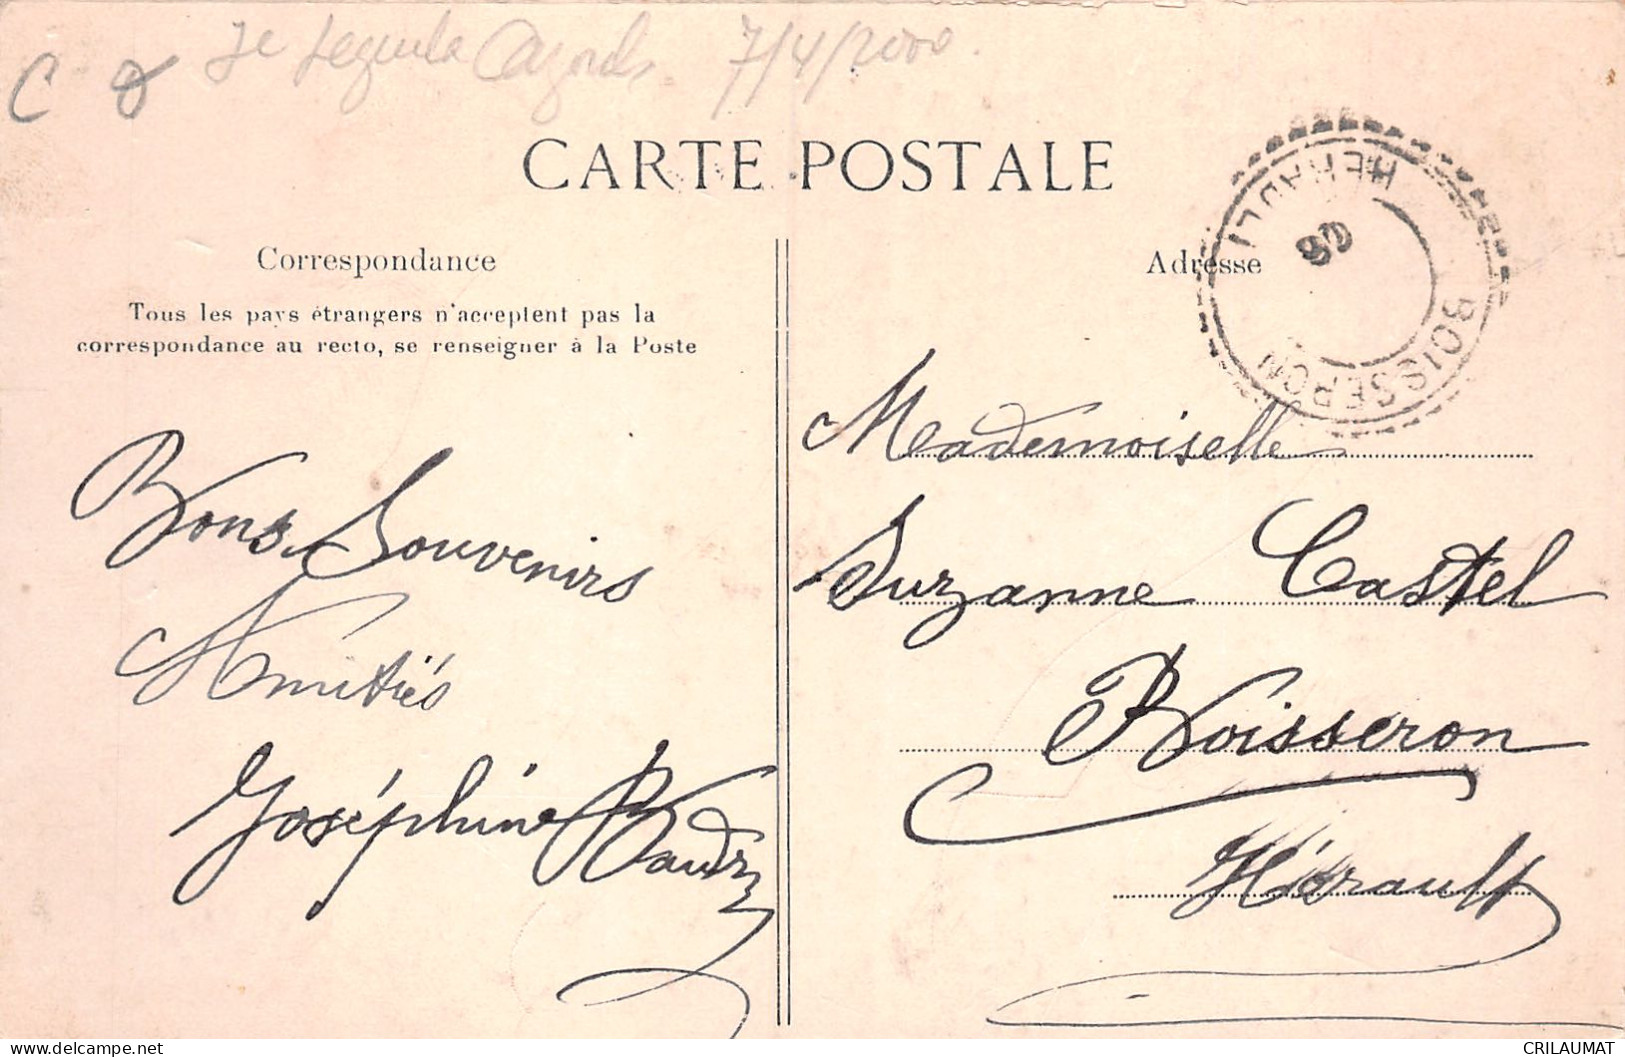 7/4/2000.
CARTE POSTALE
Correspondance
Tous les pays étrangers n'acceptent pas la
correspondance au recto, se renseigner à la Poste
Bons Souvenirs
Amitiés
Joséphine
Adresse
BOISSERON
HERAULT
Mademoiselle
Suzanne Castel
Boisseron
Hérault
CRILAUMAT